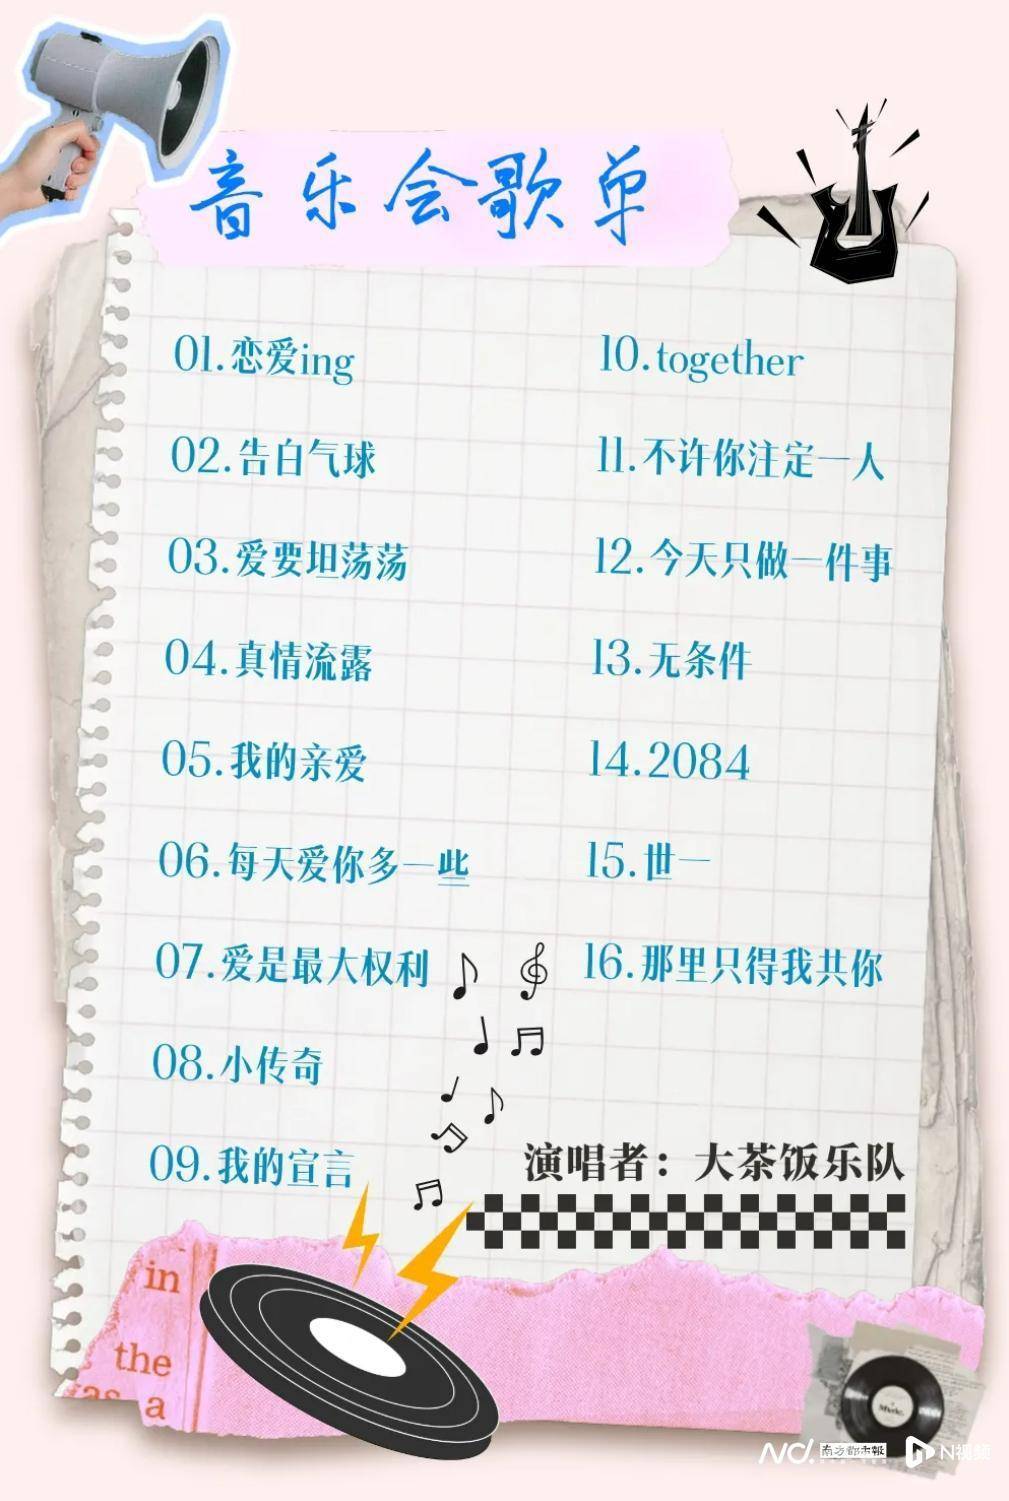 音乐会歌单
01.恋爱ing
02.告白气球
03.爱要坦荡荡
04.真情流露
05.我的亲爱
06.每天爱你多一些
07.爱是最大权利
08.小传奇
09.我的宣言
10.together
11.不许你注定一人
12.今天只做一件事
13.无条件
14.2084
15.世一
16.那里只得我共你
演唱者：大茶饭乐队
in
the
as a
Music.
南方都市報
N视频